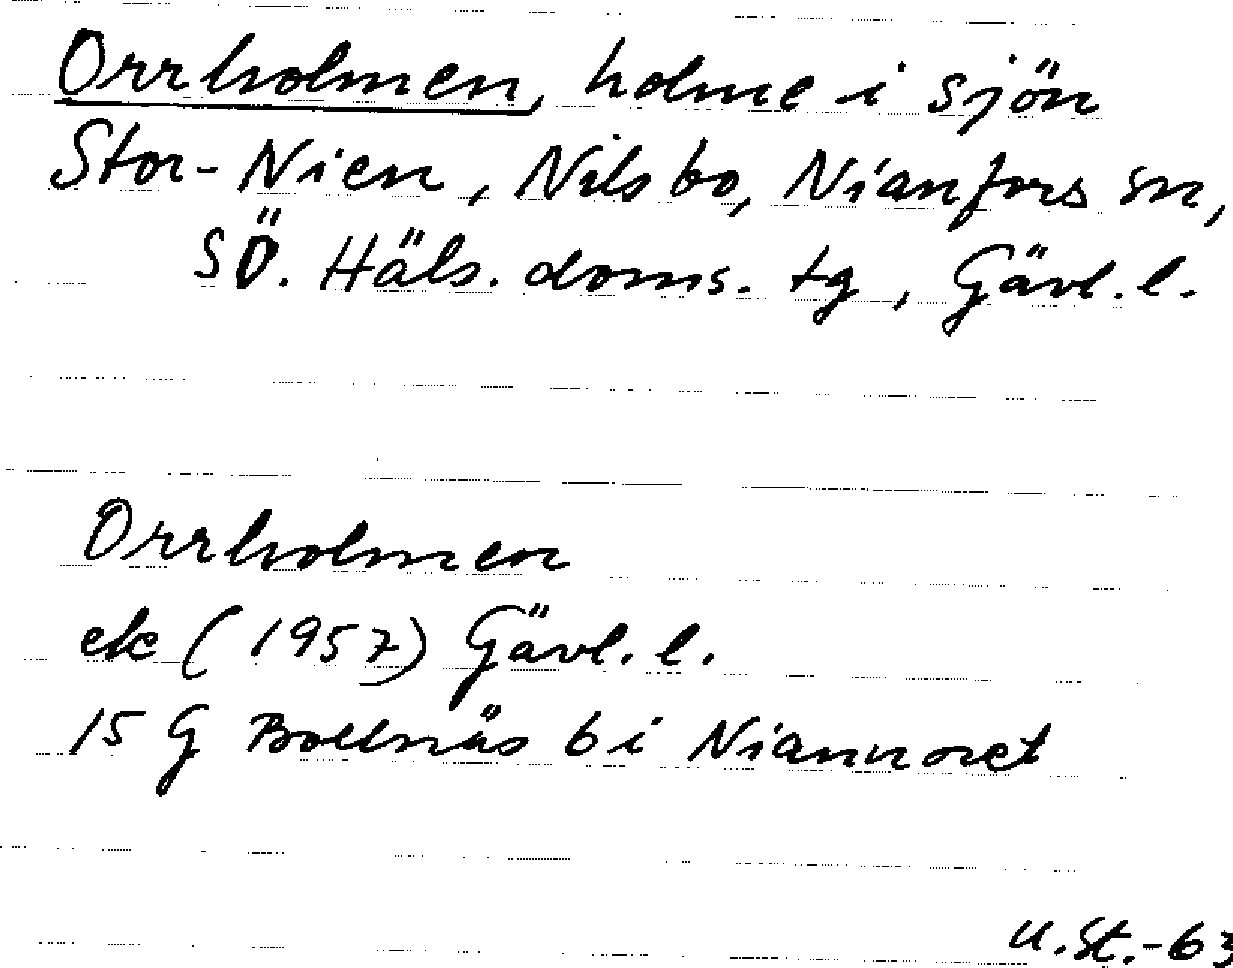 Orrholmen, holme i sjön
Stor-Nien, Nilsbo, Nianfors sn,
SÖ. Häls. doms. tg, Gävl. l.
Orrholmen
ek (1957) Gävl. l.
15 G Bollnäs 6 i Niannoret
U.St.-63